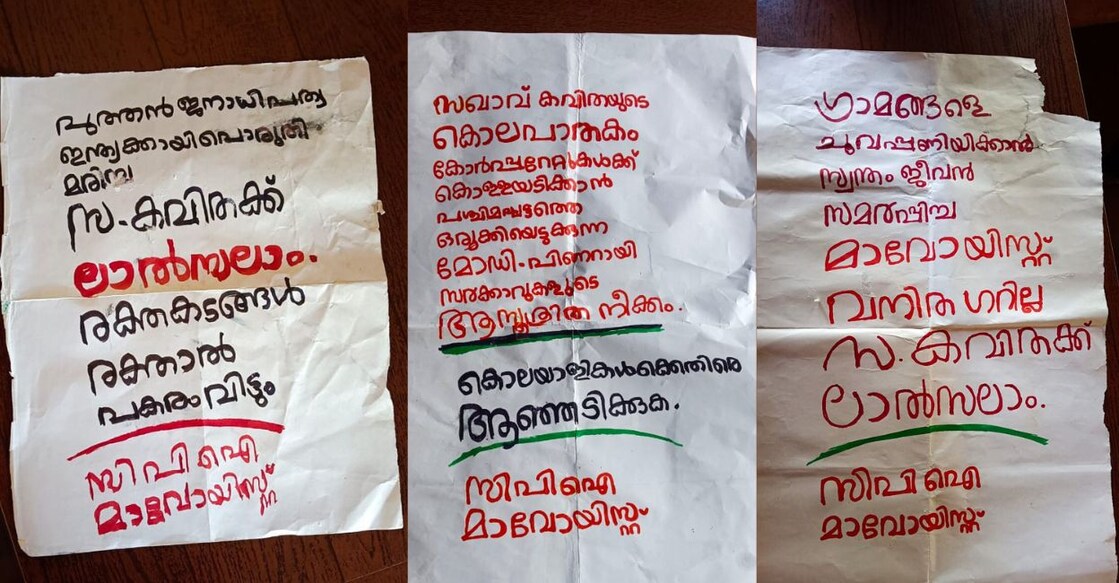 പുത്തൻ ജനാധിപത്യ
ഇന്ത്യക്കായി പൊരുതി
മരിച്ച
സ. കവിതക്ക്
ലാൽസലാം.
രക്തകടങ്ങൾ
രക്താൽ
പകരം വിട്ടും
സിപിഐ
മാവോയിസ്റ്റ്
സഖാവ് കവിതയുടെ
കൊലപാതകം
കോർപ്പറേറ്റുകൾക്ക്
കൊള്ളയടിക്കാൻ
പശ്ചിമഘട്ടത്തെ
ഒരുക്കിയെടുക്കുന്ന
മോഡി-പിണറായി
സർക്കാവുകളുടെ
ആസൂത്രിത നീക്കം.
കൊലയാളികൾക്കെതിരെ
ആഞ്ഞടിക്കുക.
സിപിഐ
മാവോയിസ്റ്റ്
ഗ്രാമങ്ങളെ
ചുവപ്പണിയിക്കാൻ
സ്വന്തം ജീവൻ
സമർപ്പിച്ച
മാവോയിസ്റ്റ്
വനിത ഗറില്ല
സ. കവിതക്ക്
ലാൽസലാം.
സിപിഐ
മാവോയിസ്റ്റ്